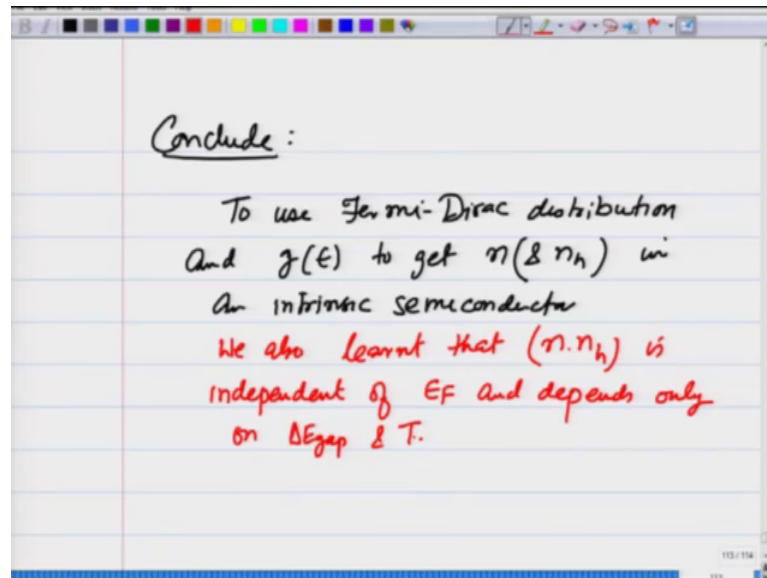 Conclude :
To use Fermi-Dirac distribution
and g(E) to get n(& nh) in
an intrinsic semiconductor
We also learnt that (n.nh) is
independent of EF and depends only
on ΔEgap & T.
113 / 114